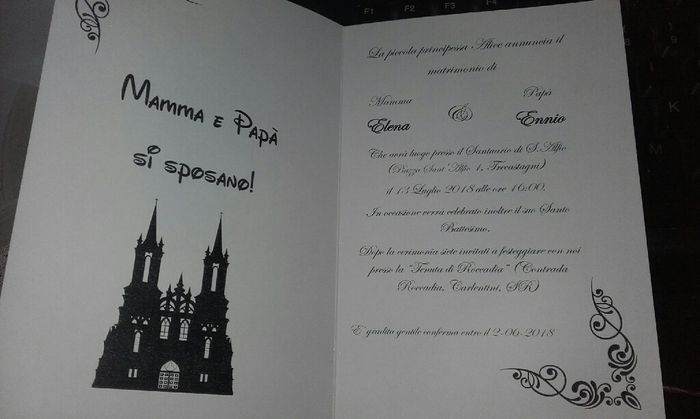 Mamma e Papà
si sposano!
La piccola principessa Alice annuncia il
matrimonio di
Mamma
Papà
Elena
&
Ennio
Che avrà luogo presso il Santuario di S. Alfio
(Piazza Sant'Alfio 1, Trecastagni)
il 13 Luglio 2018 alle ore 16:00.
In occasione verrà celebrato inoltre il suo Santo
Battesimo.
Dopo la cerimonia siete invitati a festeggiare con noi
presso la "Tenuta di Roccadia" (Contrada
Roccadia, Carlentini, SR)
E' gradita gentile conferma entro il 2-06-2018
F1
F2
F3
F4
K
M